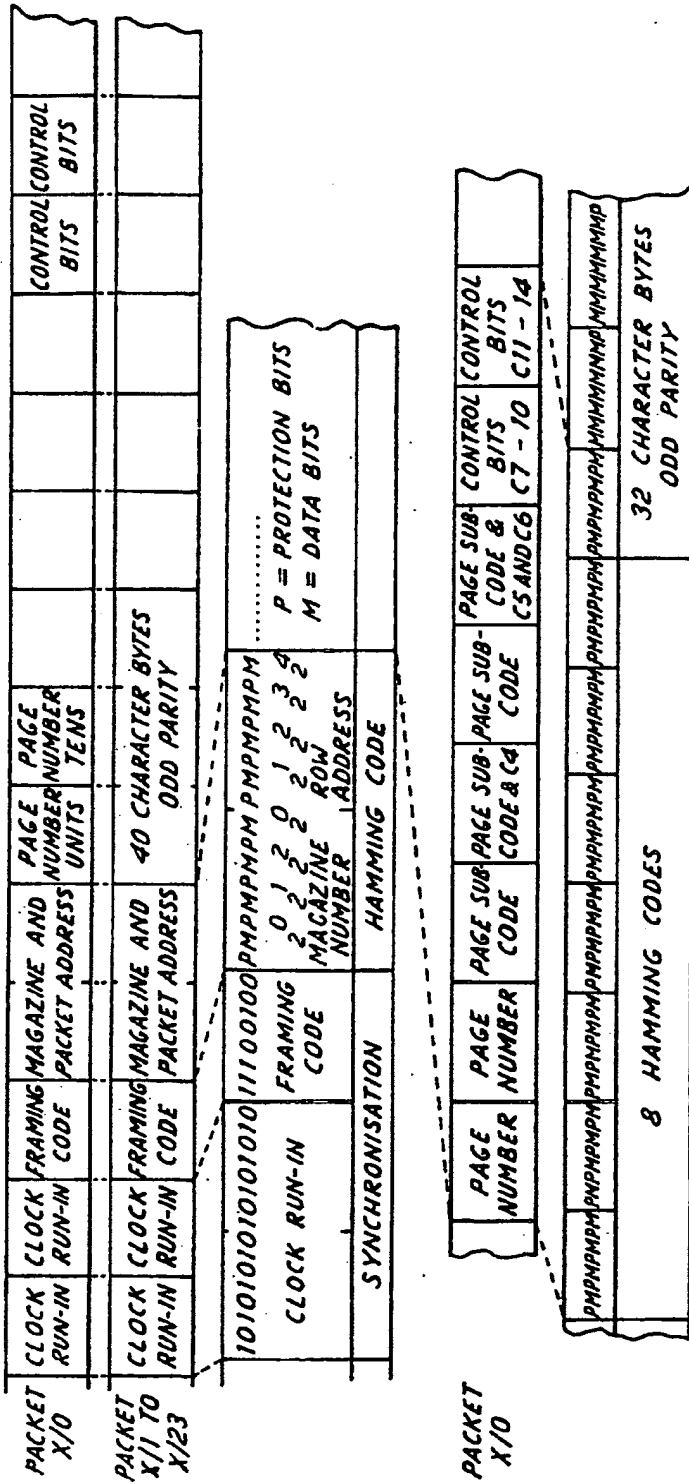 PACKET
X/0
CLOCK
RUN-IN
CLOCK
RUN-IN
FRAMING
CODE
MAGAZINE AND
PACKET ADDRESS
PAGE
NUMBER
UNITS
PAGE
NUMBER
TENS
CONTROL
BITS
CONTROL
BITS
PACKET
X/1 TO
X/23
CLOCK
RUN-IN
CLOCK
RUN-IN
FRAMING
CODE
MAGAZINE AND
PACKET ADDRESS
40 CHARACTER BYTES
ODD PARITY
1010101010101010
CLOCK RUN-IN
11100100
FRAMING
CODE
PMPMPMPM PMPMPMPM
0 1 2 0 1 2 3 4
2 2 2 2 2 2 2 2
MAGAZINE
NUMBER
ROW
ADDRESS
P = PROTECTION BITS
M = DATA BITS
SYNCHRONISATION
HAMMING CODE
PACKET
X/0
PAGE
NUMBER
PAGE
NUMBER
PAGE SUB
CODE
PAGE SUB-
CODE & C4
PAGE SUB-
CODE
PAGE SUB-
CODE &
C5 AND C6
CONTROL
BITS
C7 - 10
CONTROL
BITS
C11 - 14
PMPMPMPM PMPMPMPM PMPMPMPM PMPMPMPM PMPMPMPM PMPMPMPM PMPMPMPM PMPMPMPM MMMMMMMP MMMMMMMP
8 HAMMING CODES
32 CHARACTER BYTES
ODD PARITY